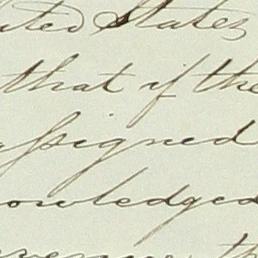 ited States
that if the
assigned
owledged